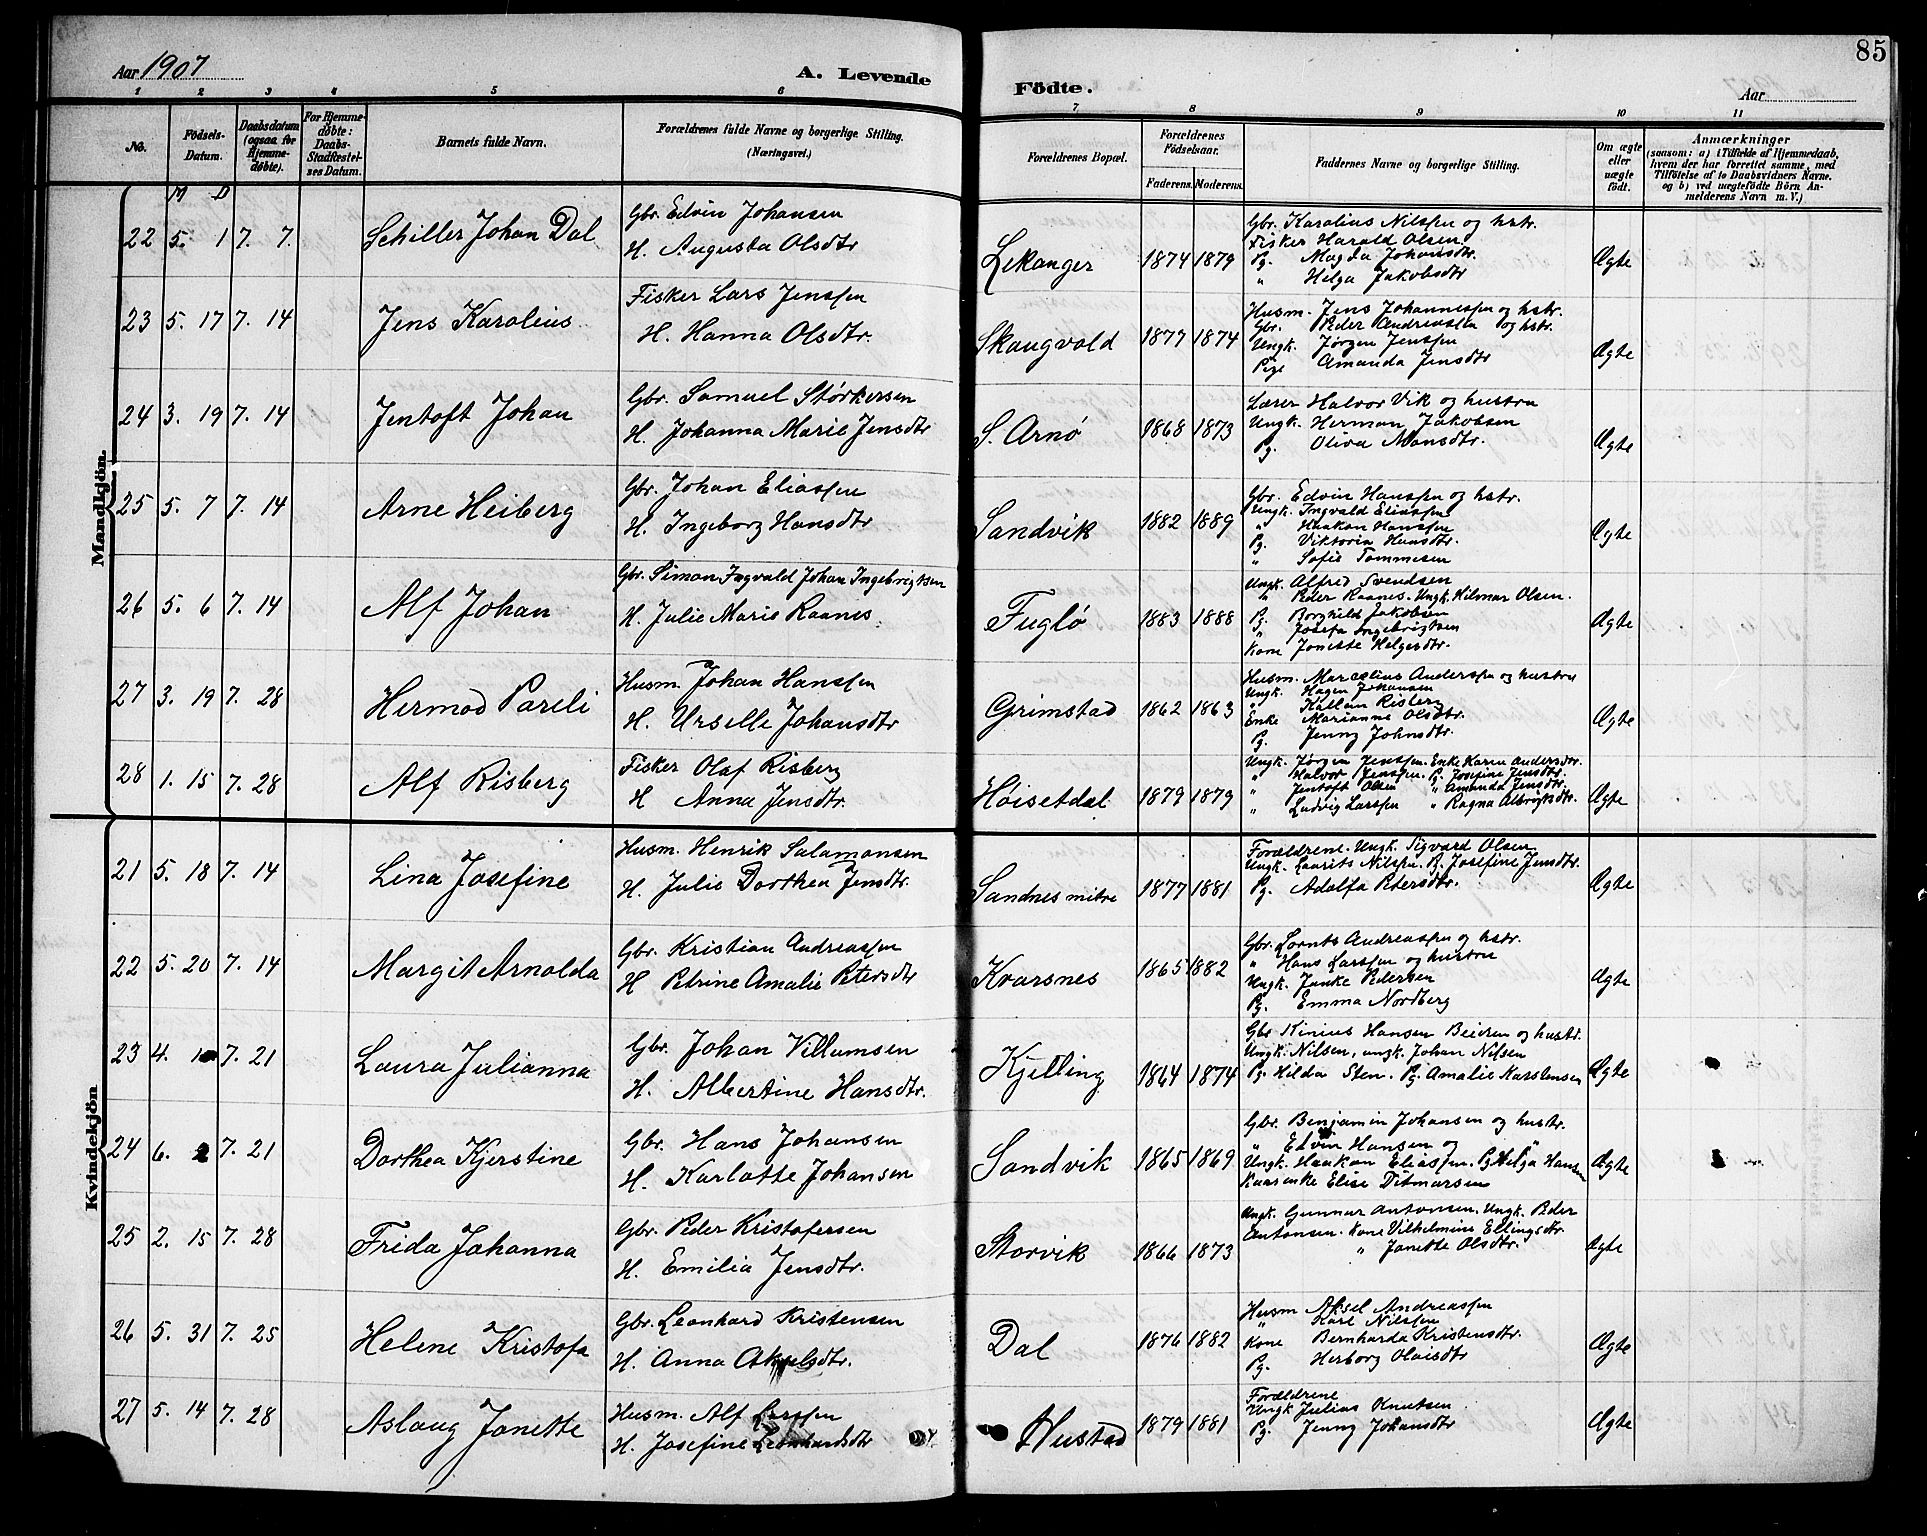 85
Aar 1907
A. Levende
Födte.
Aar
1 2 3 4 5 6 7 8 9 10 11
No.
Födsels-Datum.
Daabsdatum (ogsaa for Hjemmedøbte).
For Hjemmedøbte: Daabs-Stadfæstelses Datum.
Barnets fulde Navn.
Forældrenes fulde Navne og borgerlige Stilling. (Næringsvei.)
Forældrenes Bopæl.
Forældrenes Fødselsaar.
Faderens. Moderens.
Faddernes Navne og borgerlige Stilling.
Om ægte eller uægte født.
Anmærkninger
(saasom: a) i Tilfælde af Hjemmedaab,
hvem der har forrettet samme, med
Tilföielse af to Daabsvidners Navne.
og b) ved uægtefödte Börn An-
melderens Navn m. V.)
M D
Mandkjön.
22 5. 1 7. 7. Schiller Johan Dal
Gbr. Edvin Johansen
H. Augusta Olsdtr
Lekanger 1874 1879
Gbr. Karolius Nilssen og hstr.
Fisker Harald Olsen
Pg. Magda Johansdtr.
" Helga Jakobsdtr
Ægte
23 5. 17 7. 14 Jens Karolius
Fisker Lars Jenssen
H. Hanna Olsdtr.
Skaugvold 1877 1874
Husm. Jens Johannessen og hstr.
Gbr. Peder Andreassen og hstr.
Ungk. Jørgen Jenssen
Pige Amanda Jensdtr
Ægte
24 3. 19 7. 14 Jentoft Johan
Gbr. Samuel Størkersen
H. Johanna Marie Jensdtr
S. Arnø 1868 1873
Lærer Halvor Vik og hustru
Ungk. Herman Jakobsen
Pg. Oliva Monsdtr.
Ægte
25 5. 7 7. 14 Arne Heiberg
Gbr. Johan Eliassen
H. Ingeborg Hansdtr
Sandvik 1882 1889
Gbr. Edvin Hanssen og hstr.
Ungk. Ingvald Eliassen
" Haakon Hanssen
Pg. Viktoria Hansdtr.
" Sofie Tommesen
Ægte
26 5. 6 7. 14 Alf Johan
Gbr. Simon Ingvald Johan Ingebrigtsen
H. Julie Marie Raanes
Fuglø 1883 1888
Ungk. Alfred Svendsen
" Peder Raanes. Ungk. Hilmar Olsen.
Pg. Borghild Jakobsen
" Josefa Ingebrigtsen
Kone Jonette Helgesdtr.
Ægte
27 3. 19 7. 28 Hermod Pareli
Husm. Johan Hanssen
H. Urselle Johansdtr
Grimstad 1862 1863
Husm. Marcelius Anderssen og hustru
Ungk. Hagen Johansen
" Risberg
Enke Marianne Olsdtr.
Pg. Jenny Johnsdtr.
Ægte
28 1. 15 7. 28 Alf Risberg
Fisker Olaf Risberg
H Anna Jensdtr.
Høisetdal 1879 1879
Ungk. Jørgen Jenssen. Enke Karen Andersdtr.
" Halvor Jenssen. Pg. Josefine Jensdtr.
" Jentoft Olsen " Amanda Jensdtr.
" Ludvig Larssen " Ragna Albrigtsdtr.
Ægte
Kvindekjön
21 5. 18 7. 14 Lina Josefine
Husm. Henrik Salamonsen
H. Julie Dorthea Jensdtr.
Sandnes mitre 1877 1881
Forældrene. Ungk. Sigvard Olsen
Ungk. Laurits Nilssen. Pg. Josefine Jensdtr.
Pg. Adolfa Petersdtr.
Ægte
22 5. 20 7. 14 Margit Arnolda
Gbr. Kristian Andreassen
H Petrine Amalie Petersdtr
Kvarsnes 1865 1882
Gbr. Lornts Andreassen og hstr.
" Hans Larssen og hustru
Ungk. Janke Pedersen
Pg. Emma Nordberg
Ægte
23 4. 7. 21 Laura Julianna
Gbr. Johan Villumsen
H. Albertine Hansdtr.
Kjelling 1864 1874
Gbr Kinius Hansen Beieren og hustr.
Ungk. Nilsen, ungk. Johan Nilsen
Pg. Hilda Sten. Pg. Amalie Karstensen
Ægte
24 6. 2 7. 21 Dorthea Kjerstine
Gbr. Hans Johansen
H. Karlotte Johansen
Sandvik 1865 1869
Gbr. Benjamin Johansen og hustr.
" Edvin Hansen og "
Ungk. Haakon Eliassen. Pg Helga Hansen
Kaarenke Elise Ditmarsen
Ægte
25 2. 15 7. 28 Frida Johanna
Gbr. Peder Kristofersen
H. Emilia Jensdtr.
Storvik 1866 1873
Ungk. Gunnar Antonsen. Ungk. Peder
Antonsen. Kone Vilhelmine Ellingsdtr
" Janette Olsdtr.
Ægte
26 5. 31 7. 25 Helene Kristofa
Gbr. Leonhard Kristensen
H. Anna Akselsdtr.
Dal 1876 1882
Husm Aksel Andreassen
" Karl Nilssen
Kone Bernharda Kristensdtr.
Pg. Herborg Olaisdtr
Ægte
27 5. 14 7. 28 Aslaug Janette
Husm. Alf Larssen
H. Josefine Leonhardsdtr
Hustad 1879 1881
Forældrene
Ungk Julius Knutsen
Pg. Jenny Johansdtr
Ægte